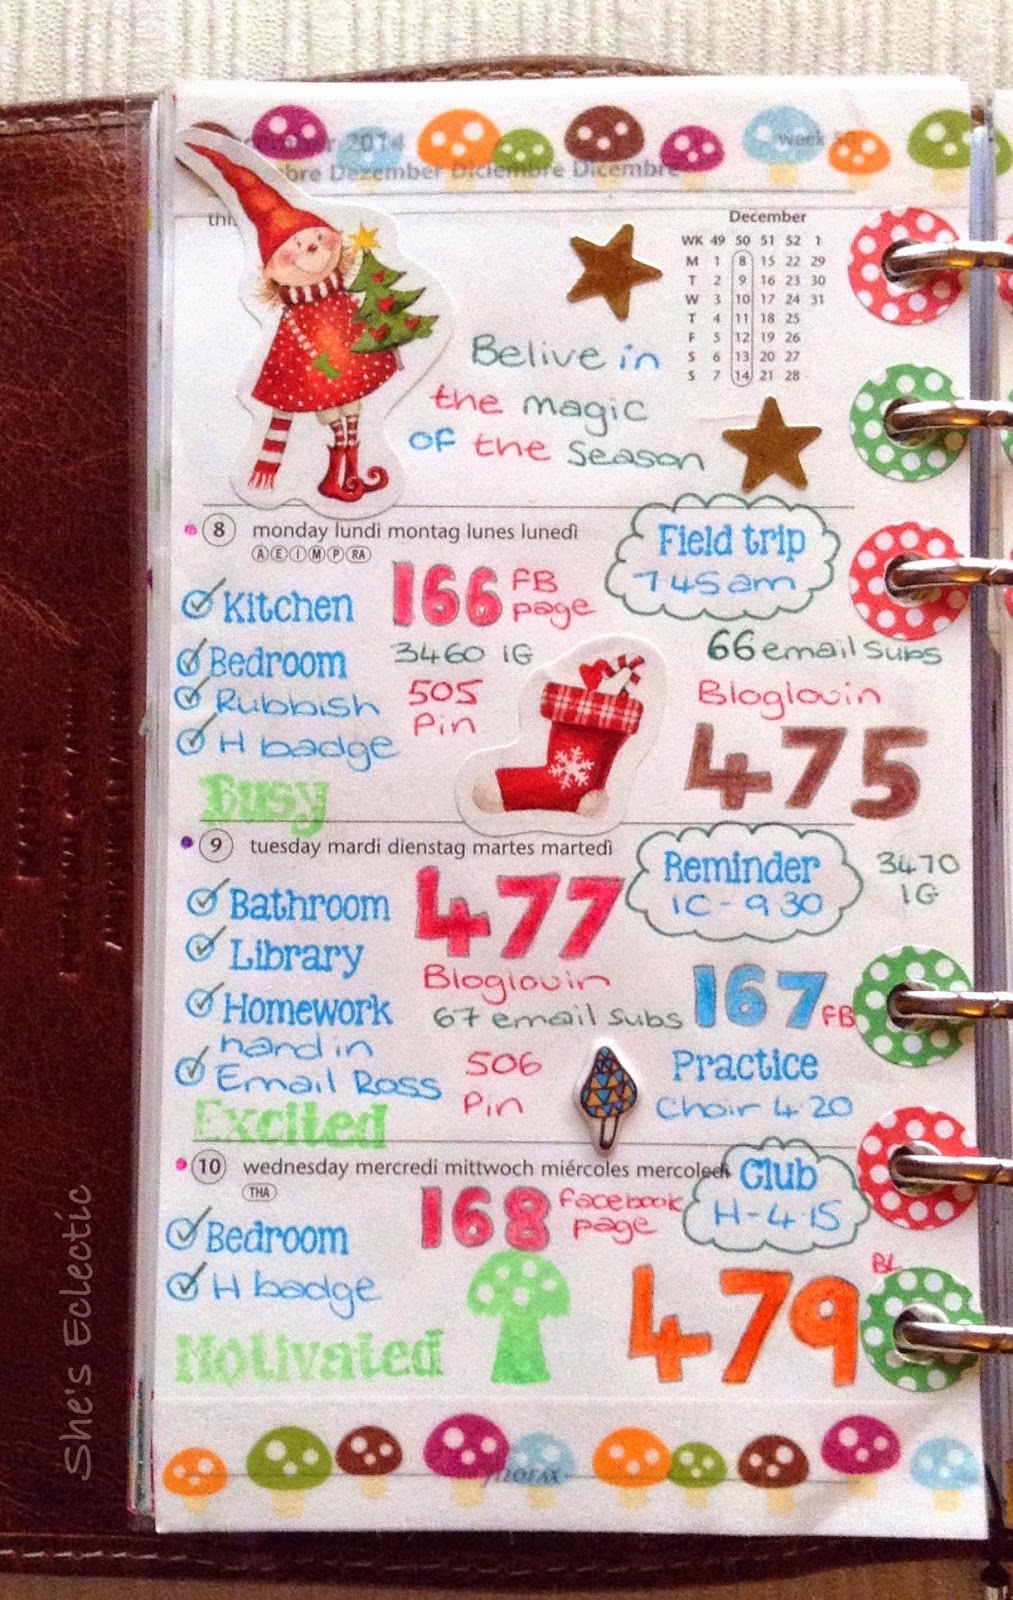 2014
Dezember Diciembre Dicembre
week
December
WK 49 50 51 52 1
M 1 8 15 22 29
T 2 9 16 23 30
W 3 10 17 24 31
T 4 11 18 25
F 5 12 19 26
S 6 13 20 27
S 7 14 21 28
Belive in
the magic
of the Season
8 monday lundi montag lunes lunedì
A E I M P RA
Field trip
7 45 am
Kitchen
166 FB page
Bedroom
3460 IG
66 email subs
Rubbish
505 Pin
Bloglovin
475
H badge
Busy
9 tuesday mardi dienstag martes martedì
Reminder
IC - 9 30
3470
IG
Bathroom
477
Library
Bloglovin
167 FB
Homework
hand in
67 email subs
Email Ross
506
Pin
Practice
Choir 4.20
Excited
10 wednesday mercredi mittwoch miércoles mercoledì
THA
Club
H - 4.15
168 facebook page
Bedroom
H badge
BL
479
Motivated
FILOFAX
She's Eclectic